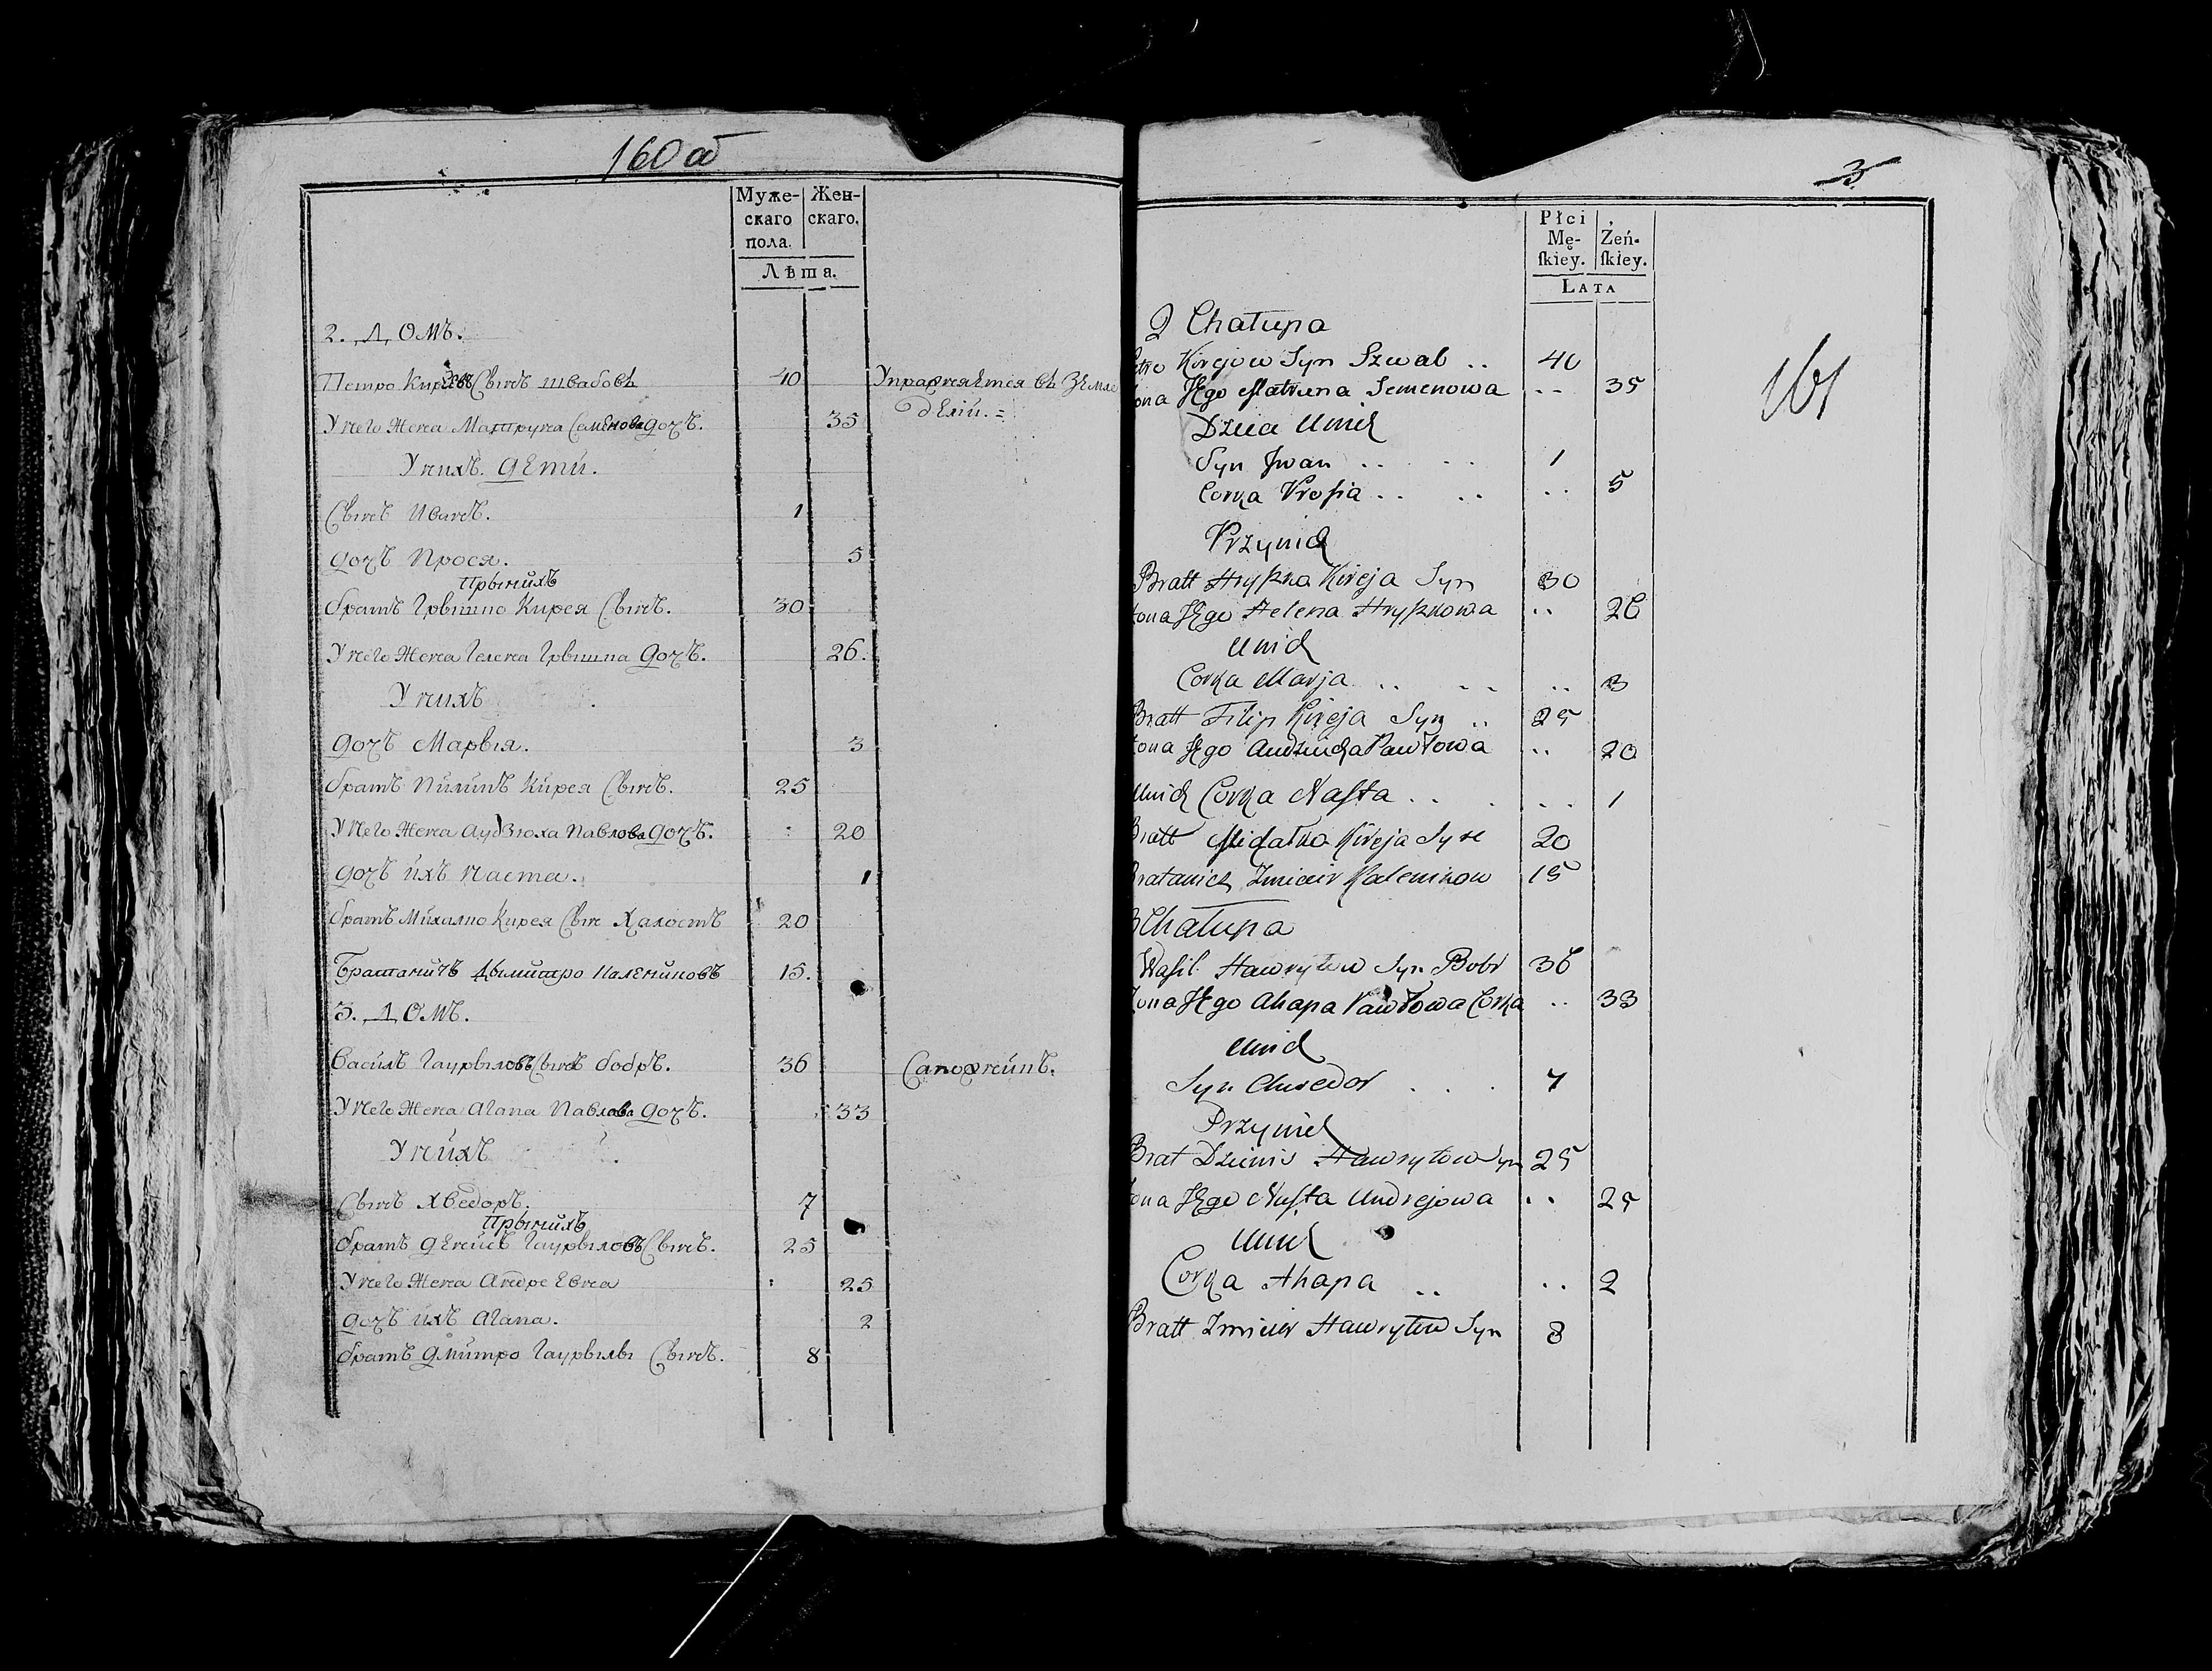 160 об
Муже-
скаго
пола.
Жен-
скаго.
Лѣта.
2. ДОМЪ.
Петро Киреевъ Сынъ Швабовъ 40 Упражняется въ Земле
делiи. =
У него Жена Матруна Семенова дочъ. 35
У нихъ. дети.
Сынъ Иванъ. 1
дочъ Прося. 5
Прынихъ
братъ Грышко Кирея Сынъ. 30
У него Жена Гелена Грышка дочъ. 26.
У нихъ
дочъ Марыя. 3
братъ Пилипъ Кирея Сынъ. 25
У него Жена Аудзюха Павлова дочъ. 20
дочъ ихъ Наста. 1
братъ Михалко Кирея Сын Халостъ 20
Братаничъ Дымитро Калениковъ 15.
3. ДОМЪ.
Василь Гаурыловъ Сынъ бобръ. 36 Сапожникъ.
У него Жена Агапа Павлова дочъ. 33
У нихъ
Сынъ Хведоръ. 7
Прынихъ
братъ Денисъ Гаурыловъ Сынъ. 25
У него Жена Андреевна 25
дочъ ихъ Агапа. 2
братъ Дмитро Гаурылы Сынъ. 8
3
Płci
Mę-
ſkiey.
Żeń-
ſkiey.
LATA
161
2 Chałupa
Kirejow Syn Szwab .. 40
Jego Matruna Semenowa .. 35
Dzieci Unich
Syn Jwan .. .. 1
Corka Prosia .. .. .. 5
Przynich
Bratt Hryszko Kireja Syn 30
Jego Helena Hryszkowa .. 26
Unich
Corka Marja .. .. .. 3
Bratt Filip Kireja Syn .. 25
Jego Audziucha Pawłowa .. 20
Unich Corka Nasta .. .. 1
Bratt Michałko Kireja Syn 20
Bratanich Zmicier Kalenikow 15
3 Chałupa
Wasil Hawryłow Syn Bobr 36
Jego Ahapa Pawłowa Corka .. 33
Unich
Syn Chwedor . . . 7
Przynich
Brat Dzienis Hawryłow Syn 25
Jego Nasta Andrejowa .. 25
Unich
Corka Ahapa .. .. 2
Bratt Zmicier Hawryłow Syn 8